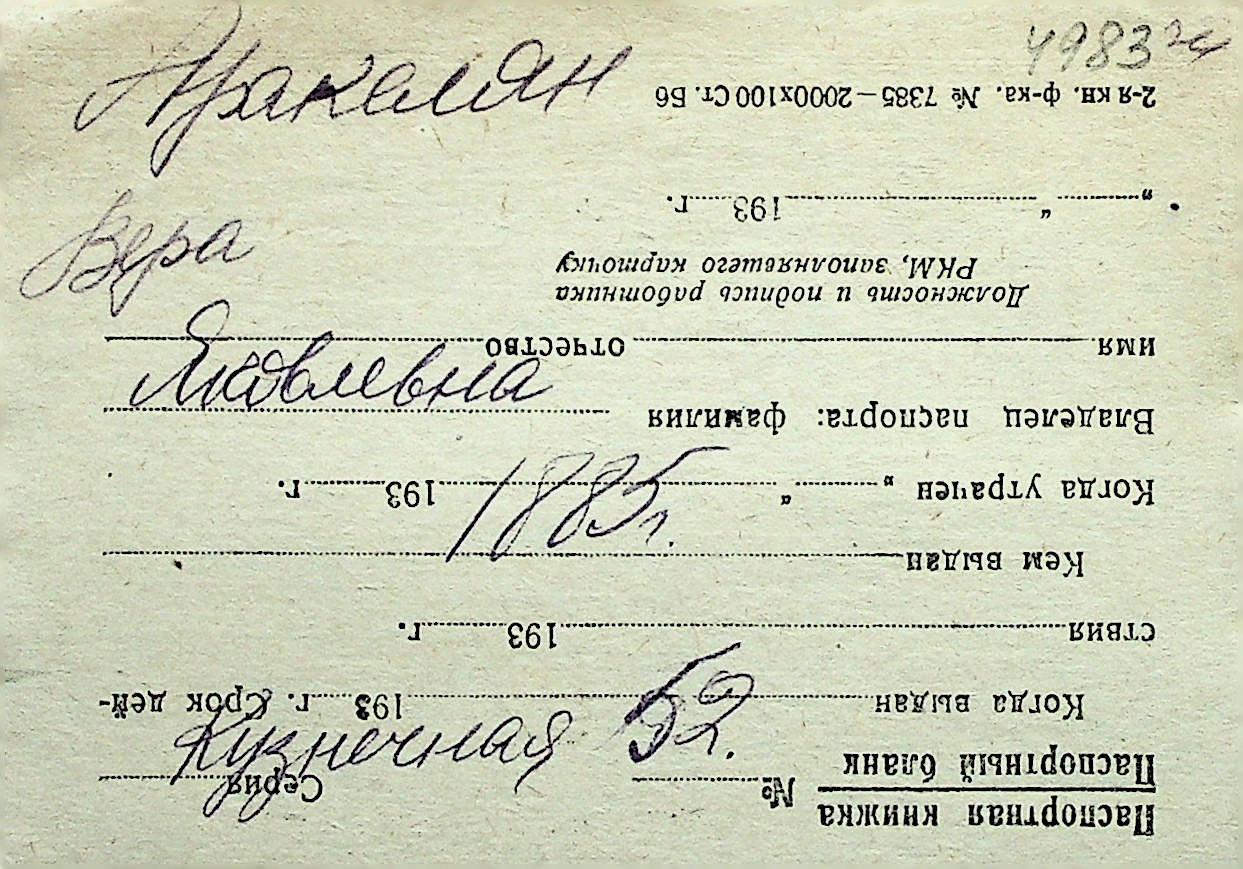 4983
Аракелян
Вера
Яковлевна
1885 г.
Кузнечная 52.
Паспортная книжка
Паспортный бланк
№ Серия
Когда выдан 193 г. Срок дей-
ствия 193 г.
Кем выдан
Когда утрачен „ “ 193 г.
Владелец паспорта: фамилия
имя отчество
Должность и подпись работника
РКМ, заполнявшего карточку
„ “ 193 г.
2-я кн. ф-ка. № 7385—2000х100 Ст. Б6